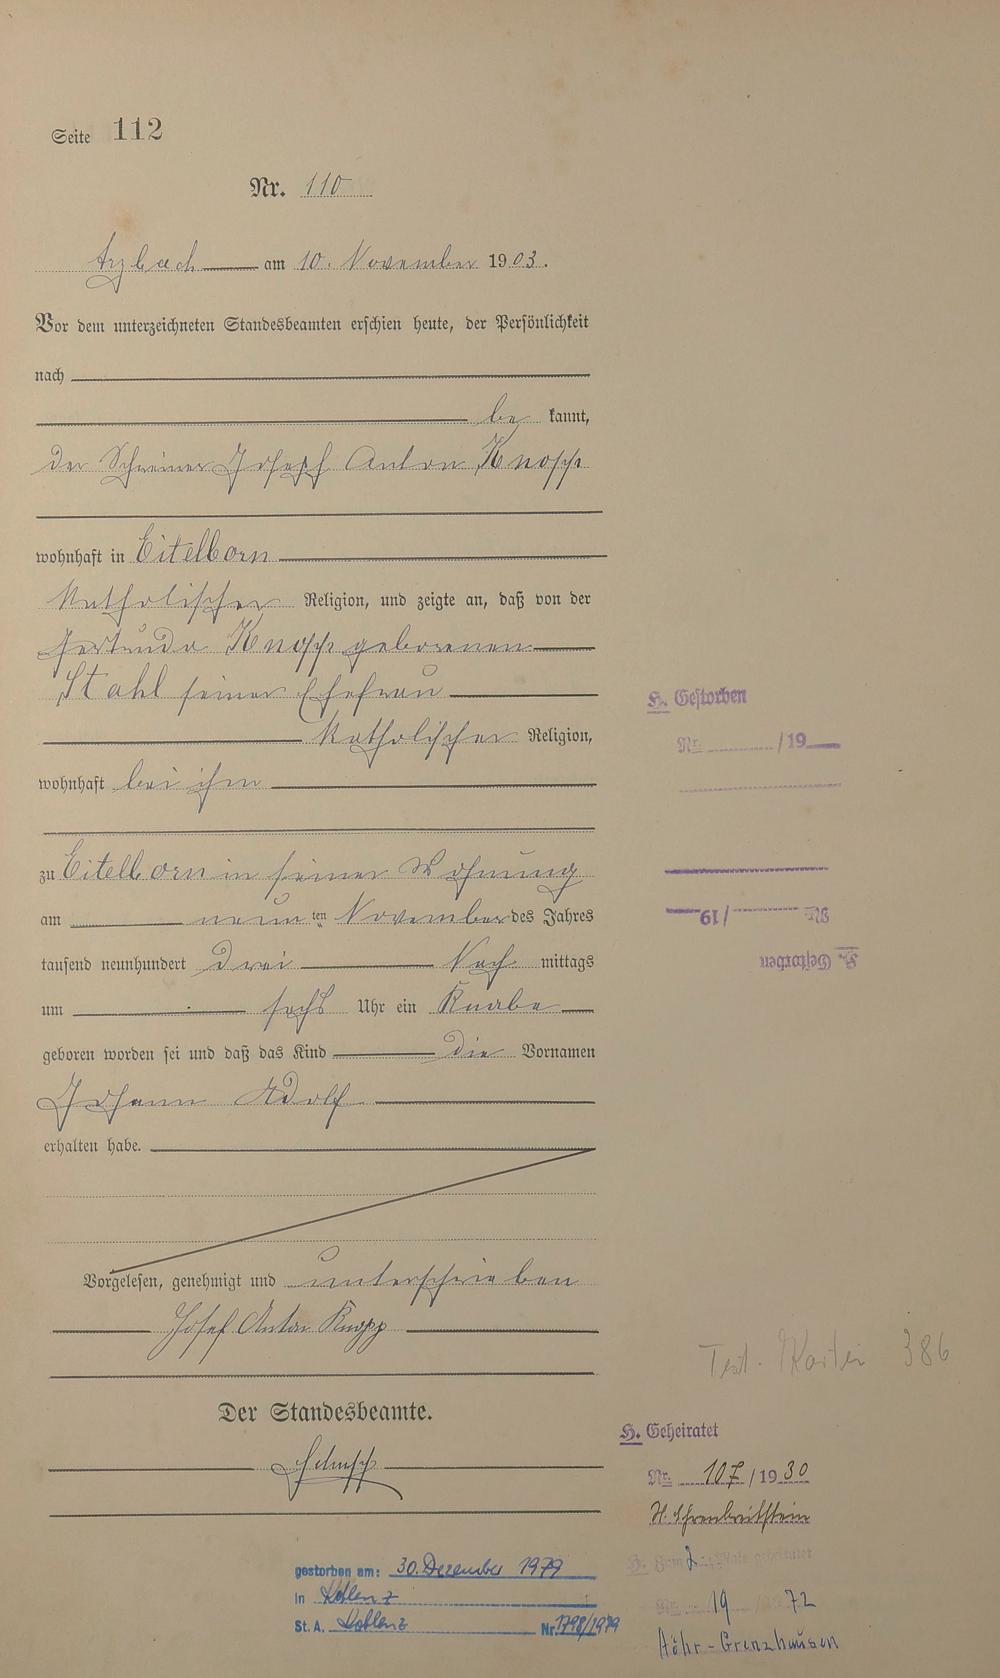 Seite 112
Nr. 110
Arzbach am 10. November 1903.
Vor dem unterzeichneten Standesbeamten erschien heute, der Persönlichkeit
nach
be kannt,
der Schreiner Joseph Anton Knopp
wohnhaft in Eitelborn
katholischer Religion, und zeigte an, daß von der
Gertruda Knopp geborenen
Stahl seiner Ehefrau
katholischer Religion,
wohnhaft bei ihm
zu Eitelborn in seiner Wohnung
am neunten November des Jahres
tausend neunhundert drei Nach mittags
um sechs Uhr ein Knabe
geboren worden sei und daß das Kind die Vornamen
Johann Adolf
erhalten habe.
Vorgelesen, genehmigt und unterschrieben
Josef Anton Knopp
Der Standesbeamte.
gestorben am: 30. Dezember 1979
in Koblenz
St. A. Koblenz Nr. 1798/1979
H. Gestorben
Nr. /19
H. Gestorben
Nr. /19
Test. Kartei 386
H. Geheiratet
Nr. 107/1930
H. Zum 2. Male geheiratet
Nr. 19 72
Höhr-Grenzhausen